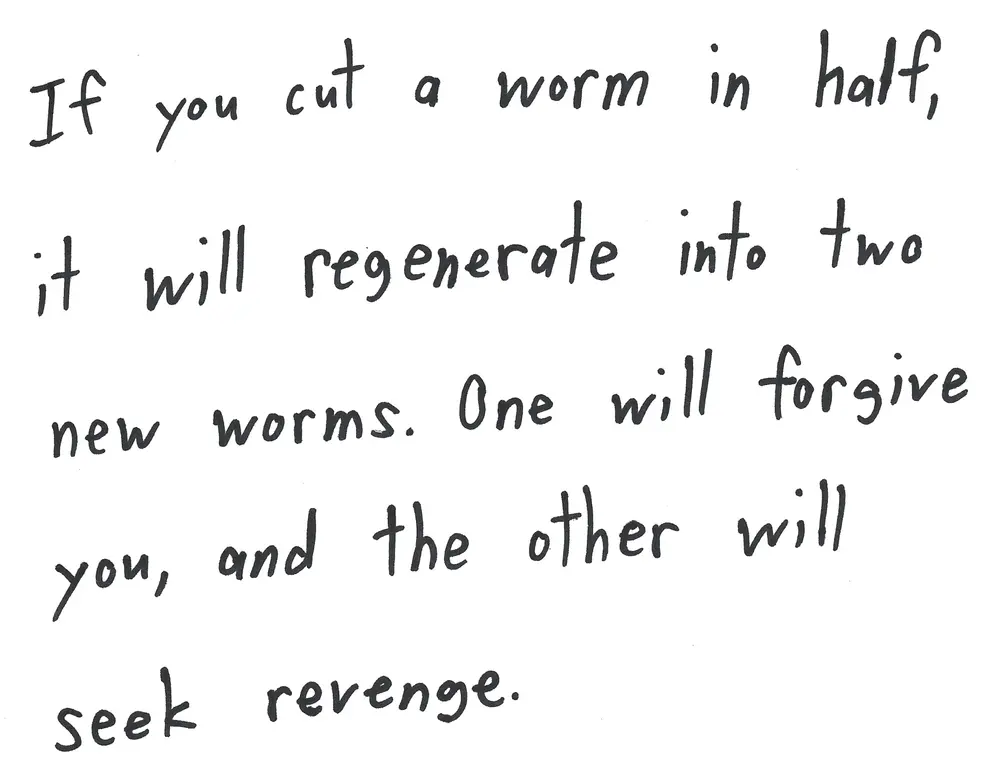 If you cut a worm in half,
it will regenerate into two
new worms. One will forgive
you, and the other will
seek revenge.